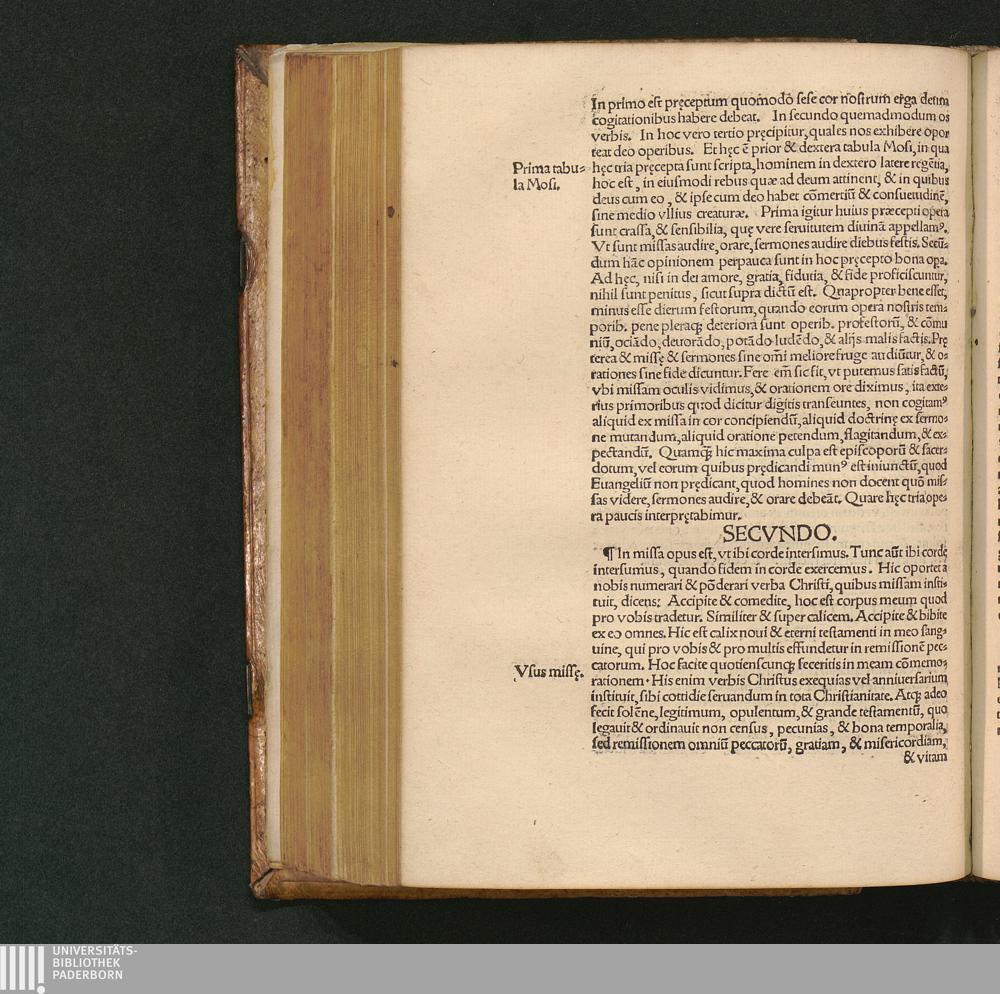 In primo est pręceptum quomodō sese cor nostrum erga deum
cogitationibus habere debeat. In secundo quemadmodum os
verbis. In hoc vero tertio pręcipitur, quales nos exhibere opor
teat deo operibus. Et hęc ē prior & dextera tabula Mosi, in qua
Prima tabu-
la Mosi.
hęc tria pręcepta sunt scripta, hominem in dextero latere regētia,
hoc est, in eiusmodi rebus quæ ad deum attinent, & in quibus
deus cum eo, & ipse cum deo habet cōmertiū & consuetudinē,
sine medio vllius creaturæ. Prima igitur huius præcepti opera
sunt crassa, & sensibilia, quę vere seruitutem diuinā appellamꝰ.
Vt sunt missas audire, orare, sermones audire diebus festis. Secū-
dum hāc opinionem perpauca sunt in hoc pręcepto bona opa.
Ad hęc, nisi in dei amore, gratia, fidutia, & fide proficiscuntur,
nihil sunt penitus, sicut supra dictū est. Quapropter bene esset,
minus esse dierum festorum, quando eorum opera nostris tem-
porib. pene pleraq; deteriora sunt operib. profestorū, & cōmu
niū, ociādo, deuorādo, potādo ludēdo, & alijs malis factis. Prę
terea & missę & sermones sine omi meliore fruge audiūtur, & o-
rationes sine fide dicuntur. Fere em̄ sic fit, vt putemus satis factū,
vbi missam oculis vidimus, & orationem ore diximus, ita exte-
rius primoribus quod dicitur digitis transeuntes, non cogitamꝰ
aliquid ex missa in cor concipiendū, aliquid doctrinę ex sermo-
ne mutandum, aliquid oratione petendum, flagitandum, & ex-
pectandū. Quamq; hic maxima culpa est episcoporū & sacer-
dotum, vel eorum quibus prędicandi munꝰ est iniunctū, quod
Euangeliū non prędicant, quod homines non docent quō mis-
sas videre, sermones audire, & orare debeāt. Quare hęc tria ope-
ra paucis interprętabimur.
SECVNDO.
¶ In missa opus est, vt ibi corde intersimus. Tunc aūt ibi corde
intersumus, quando fidem in corde exercemus. Hic oportet a
nobis numerari & pōderari verba Christi, quibus missam insti-
tuit, dicens: Accipite & comedite, hoc est corpus meum quod
pro vobis tradetur. Similiter & super calicem. Accipite & bibite
ex eo omnes. Hic est calix noui & eterni testamenti in meo sang-
uine, qui pro vobis & pro multis effundetur in remissionē pec-
Vsus missę.
catorum. Hoc facite quotienscunq; feceritis in meam cōmemo-
rationem. His enim verbis Christus exequias vel anniuersarium
instituit, sibi cottidie seruandum in tota Christianitate. Atq; adeo
fecit solēne, legitimum, opulentum, & grande testamentū, quo
legauit & ordinauit non census, pecunias, & bona temporalia,
sed remissionem omniū peccatorū, gratiam, & misericordiam,
& vitam
UNIVERSITÄTS-
BIBLIOTHEK
PADERBORN